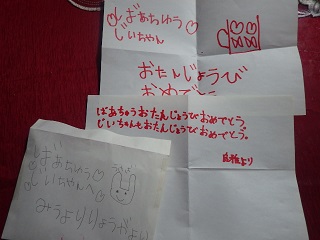 ばあちゅう
じいちゃん
おたんじょうび
おめでとう
ばあちゅうおたんじょうびおめでとう。
じいちゃんもおたんじょうびおめでとう。
より
ばあちゅう♡
じいちゃんへ♡
みうより